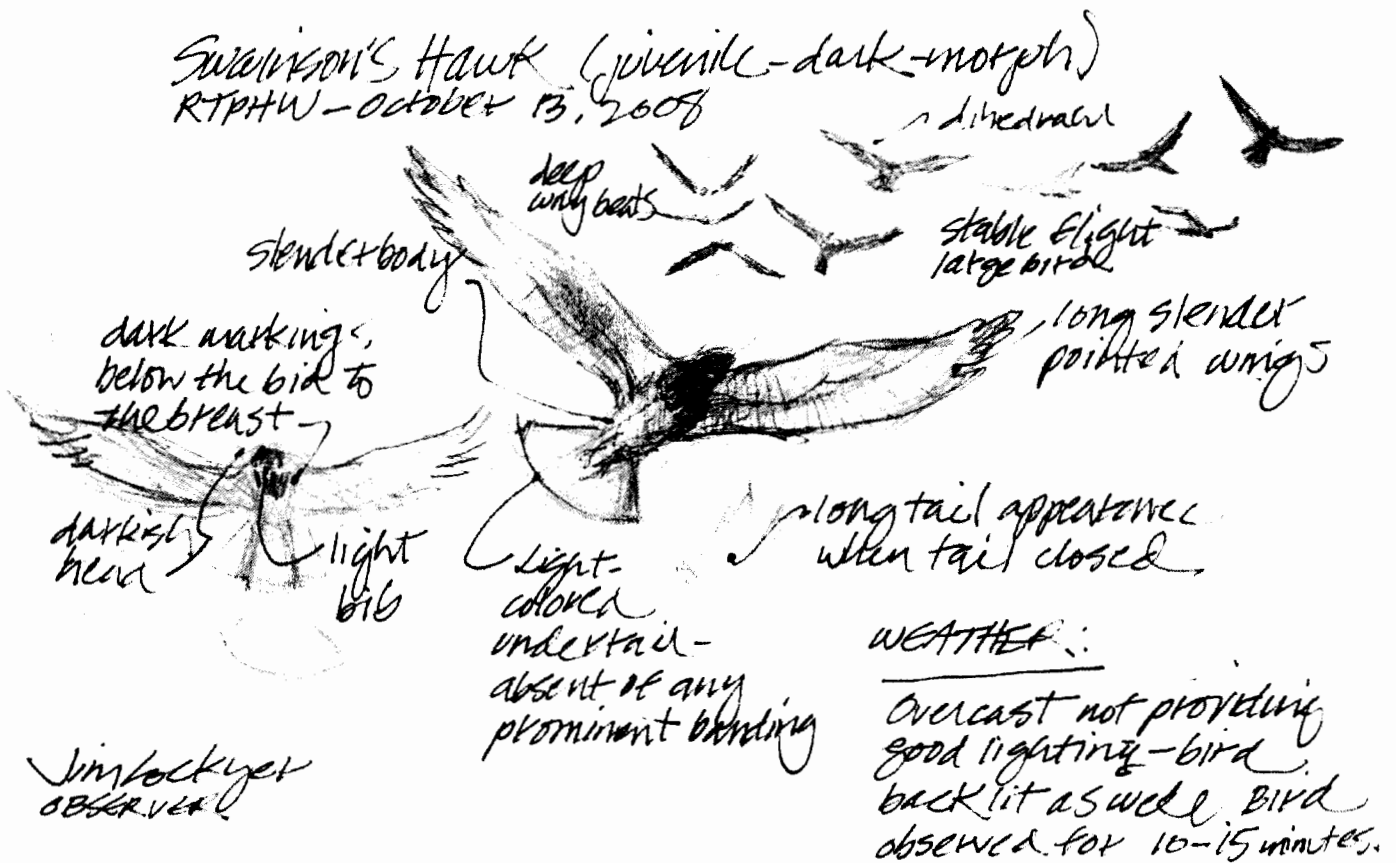 Swainson's Hawk (juvenile-dark-morph)
RTPHW - October 13, 2008
dihedral
deep
wing beats
stable flight
large bird
slender body
long slender
pointed wings
dark markings
below the bib to
the breast
darkish
head
light
bib
light-
colored
undertail-
absent of any
prominent banding
long tail appearance
when tail closed
WEATHER:
Overcast not providing
good lighting - bird
back lit as well. Bird
observed for 10-15 minutes.
Jim Lockyer
OBSERVER